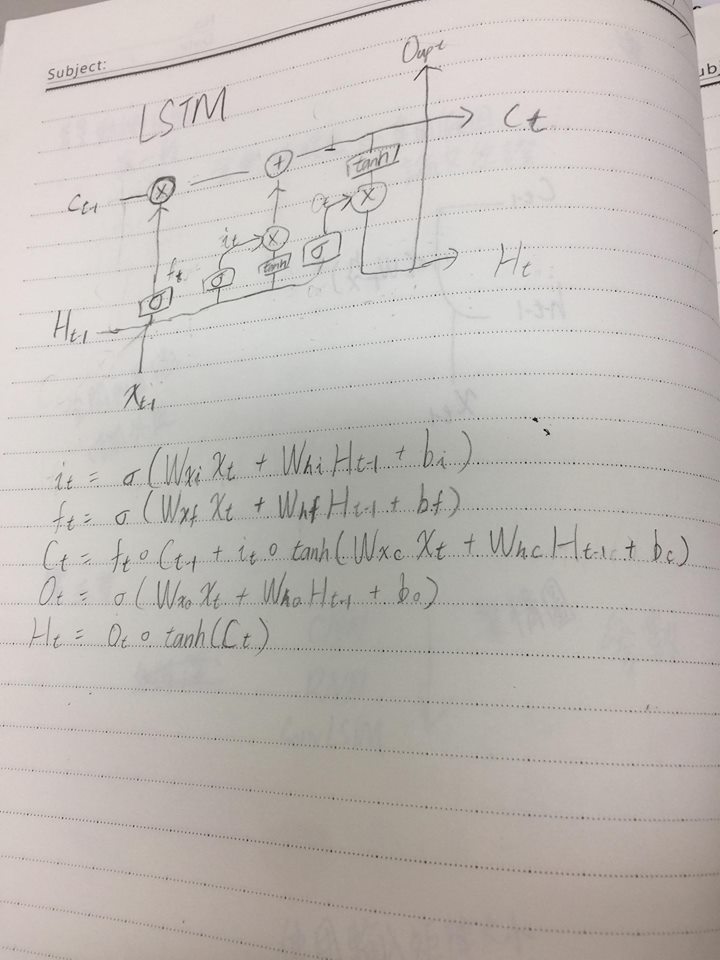 Subject:
LSTM
Output
C_t
C_{t-1}
×
+
tanh
×
O_t
i_t
×
f_t
σ
σ
tanh
σ
H_{t-1}
H_t
X_{t-1}
i_t = σ(W_{xi} X_t + W_{hi} H_{t-1} + b_i)
f_t = σ(W_{xf} X_t + W_{hf} H_{t-1} + b_f)
C_t = f_t ∘ C_{t-1} + i_t ∘ tanh(W_{xc} X_t + W_{hc} H_{t-1} + b_c)
O_t = σ(W_{xo} X_t + W_{ho} H_{t-1} + b_o)
H_t = O_t ∘ tanh(C_t)